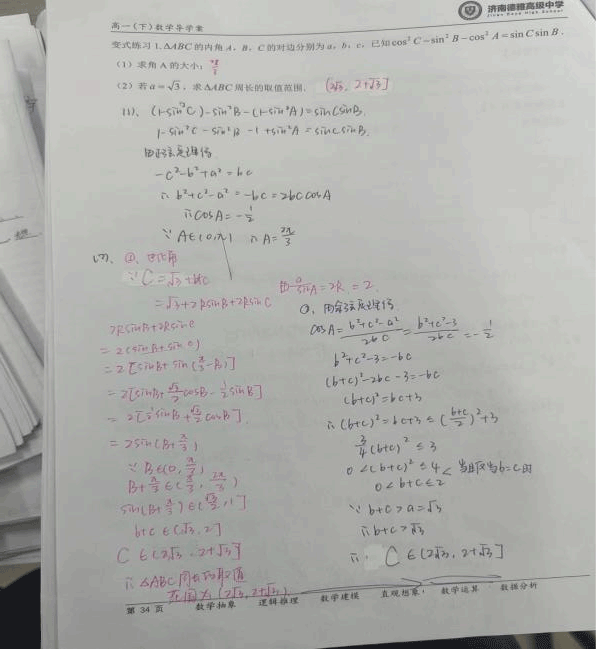 高一(下)数学导学案
济南德雅高级中学
变式练习 1.△ABC 的内角 A、B、C 的对边分别为 a、b、c,已知 cos²C－sin²B－cos²A＝sinCsinB.
(1) 求角 A 的大小; 2π/3
(2) 若 a＝√3,求△ABC 周长的取值范围. (2√3, 2+√3]
(1)、(1-sin²C)-sin²B-(1-sin²A)=sinCsinB.
1-sin²C-sin²B-1+sin²A=sinCsinB.
由正弦定理得
-c²-b²+a²=bc
∴ b²+c²-a²=-bc=2bccosA
∴cosA=-1/2
∵ A∈(0,π) ∴A=2π/3
(2) ①,
∵ C=√3+b+c
=√3+2RsinB+2RsinC
2RsinB+2RsinC
=2(sinB+sinC)
=2[sinB+sin(π/3-B)]
=2[sinB+√3/2cosB-1/2sinB]
=2[1/2sinB+√3/2cosB]
=2sin(B+π/3)
∵ B∈(0,π/3)
B+π/3∈(π/3,2π/3)
sin(B+π/3)∈(√3/2,1]
b+c∈(√3,2]
C∈(2√3,2+√3]
∴△ABC周长的取值
范围为(2√3,2+√3]
由a/sinA=2R=2
②,用余弦定理得
cosA=b²+c²-a²/2bc=b²+c²-3/2bc=-1/2
b²+c²-3=-bc
(b+c)²-2bc-3=-bc
(b+c)²=bc+3
∴(b+c)²=bc+3≤(b+c/2)²+3
3/4(b+c)²≤3
0<(b+c)²≤4 当且仅当b=c时
0<b+c≤2
∵ b+c>a=√3
∴b+c>√3
∴ C∈(2√3,2+√3]
第 34 页 数学抽象 逻辑推理 数学建模 直观想象 数学运算 数据分析